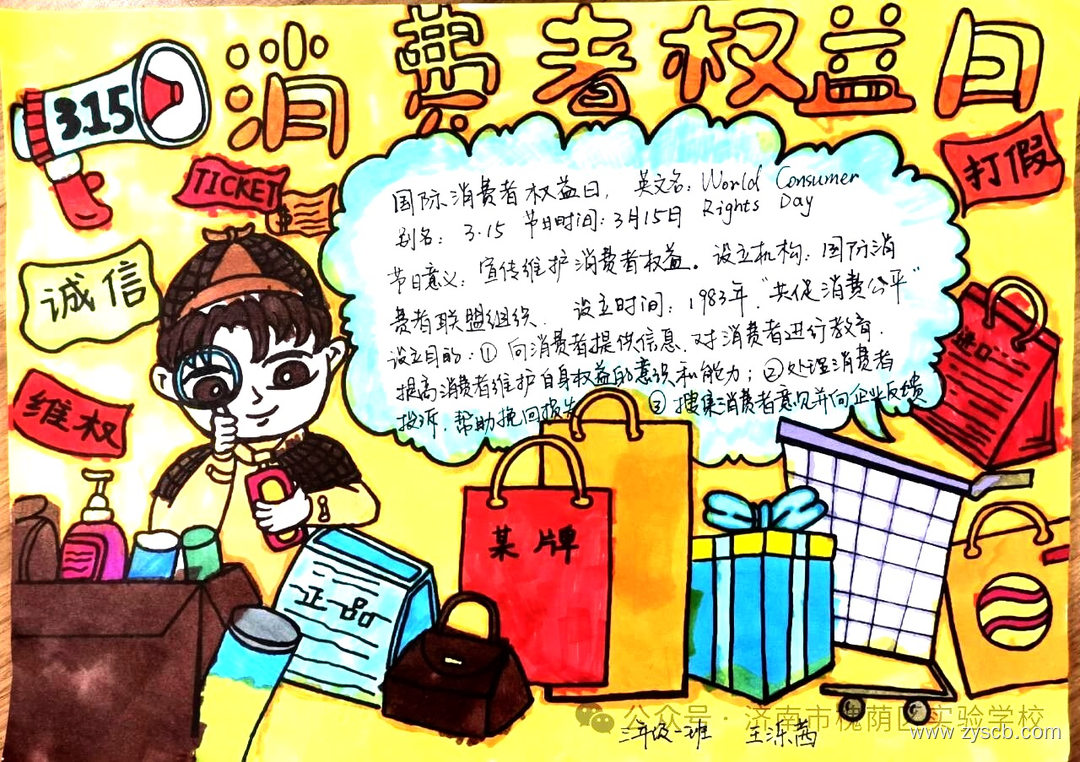 消费者权益日
3.15
打假
TICKET
诚信
维权
国际消费者权益日，英文名：World Consumer
Rights Day
别名：3.15 节日时间：3月15日
节日意义：宣传维护消费者权益。设立机构：国际消
费者联盟组织. 设立时间：1983年.“共促消费公平”
设立目的：①向消费者提供信息.对消费者进行教育.
提高消费者维护自身权益的意识和能力；②处理消费者
投诉.帮助挽回损失 ③搜集消费者意见并向企业反馈
进口
某牌
正品
公众号·济南市槐荫区实验学校
三年级一班 王泺茜
www.zyscb.com